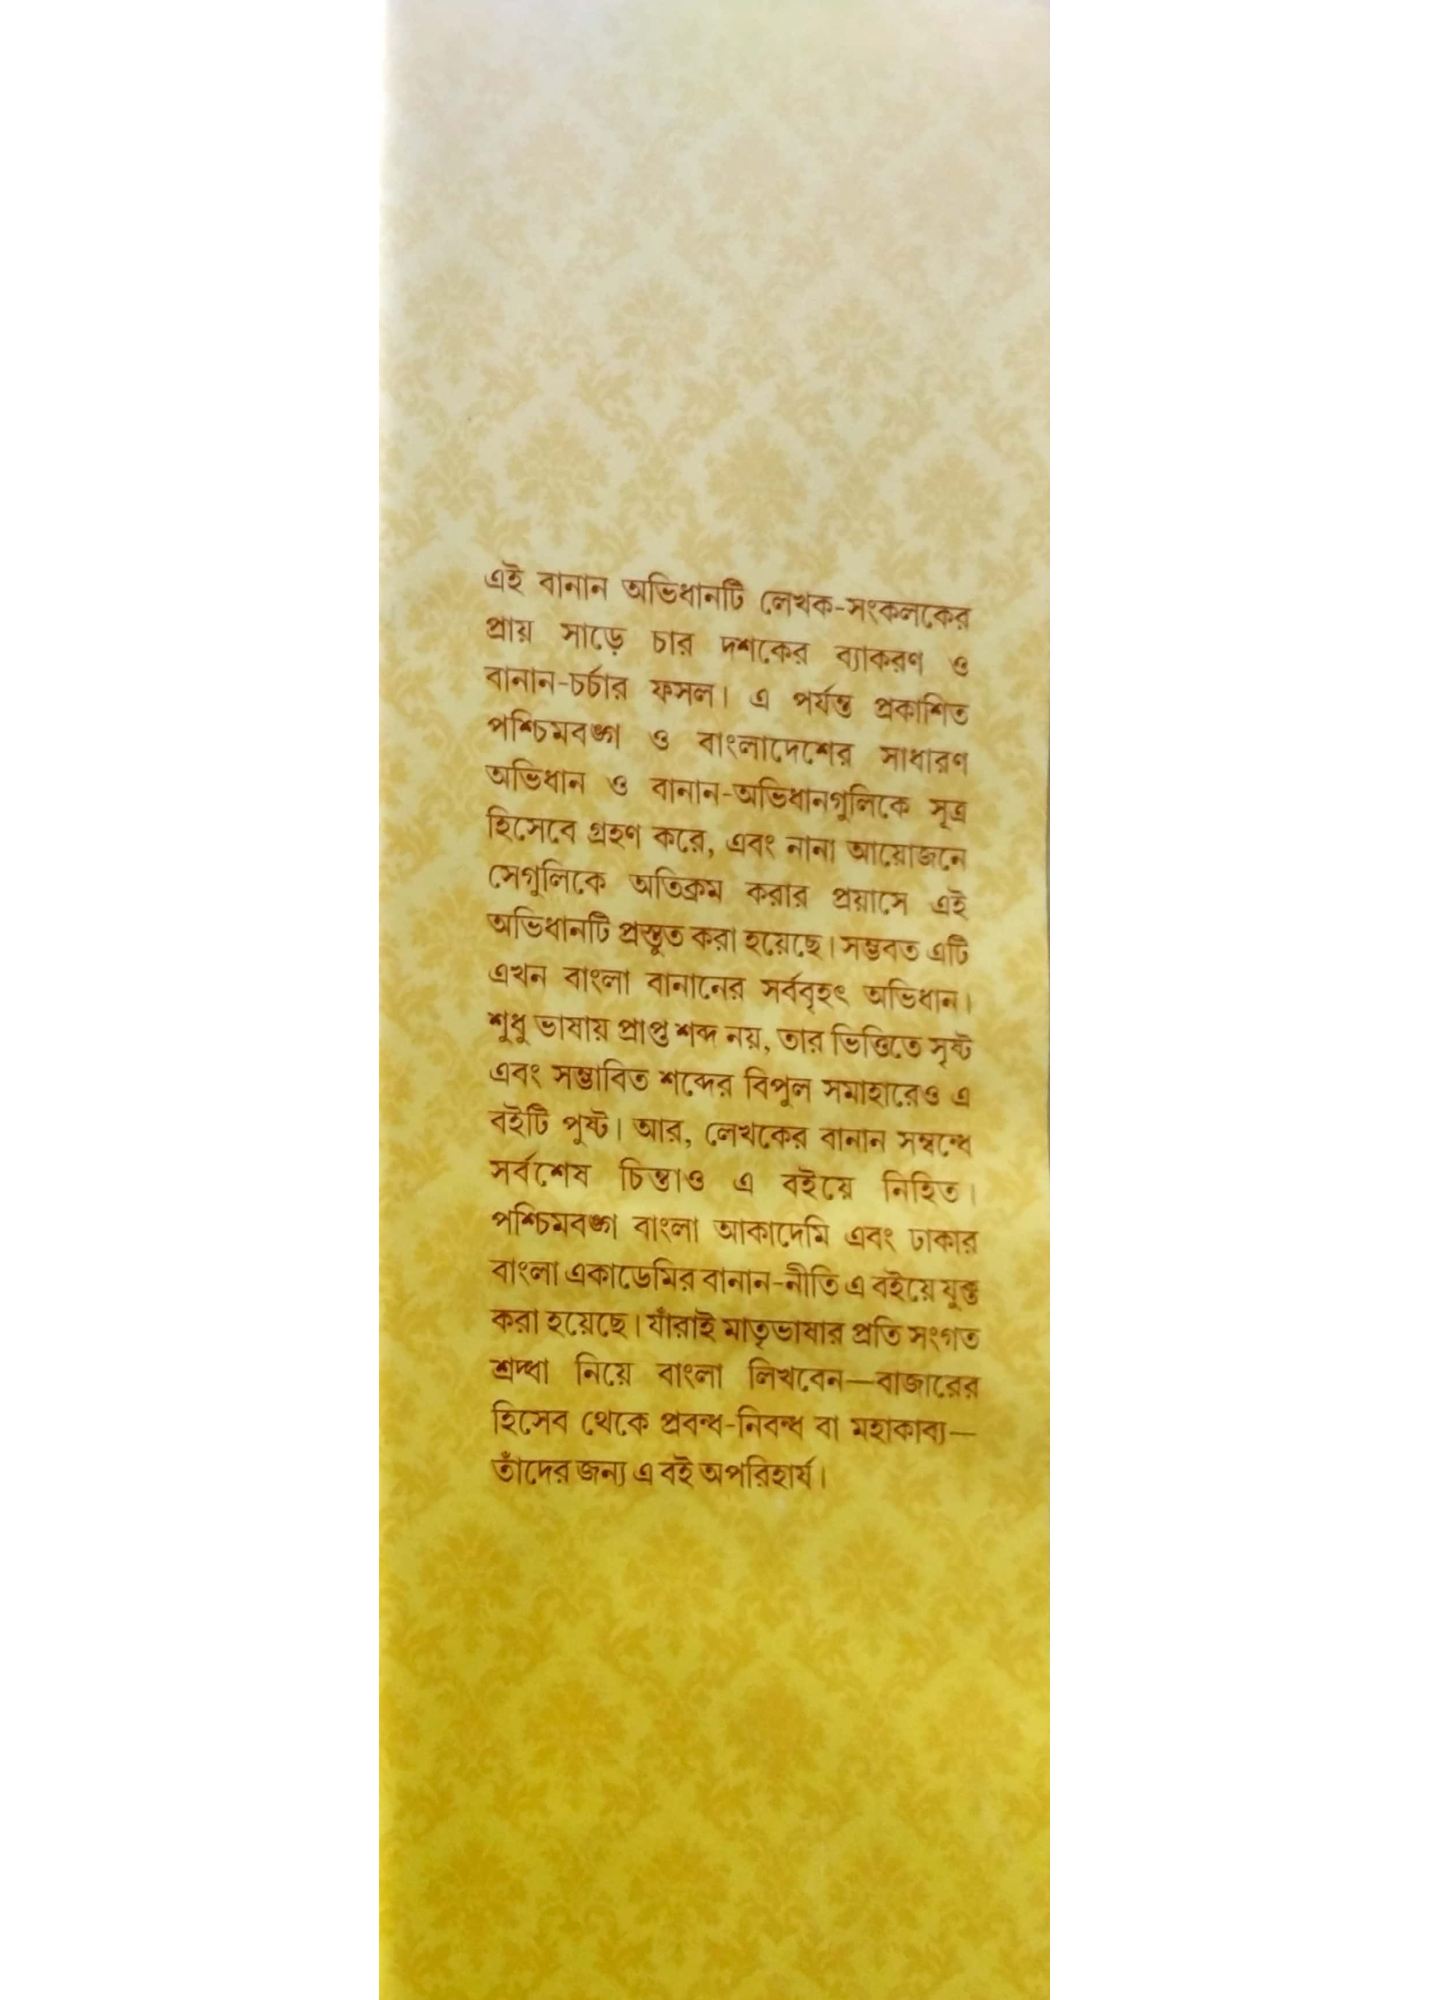 এই বানান অভিধানটি লেখক-সংকলকের
প্রায় সাড়ে চার দশকের ব্যাকরণ ও
বানান-চর্চার ফসল। এ পর্যন্ত প্রকাশিত
পশ্চিমবঙ্গ ও বাংলাদেশের সাধারণ
অভিধান ও বানান-অভিধানগুলিকে সূত্র
হিসেবে গ্রহণ করে, এবং নানা আয়োজনে
সেগুলিকে অতিক্রম করার প্রয়াসে এই
অভিধানটি প্রস্তুত করা হয়েছে। সম্ভবত এটি
এখন বাংলা বানানের সর্ববৃহৎ অভিধান।
শুধু ভাষায় প্রাপ্ত শব্দ নয়, তার ভিত্তিতে সৃষ্ট
এবং সম্ভাবিত শব্দের বিপুল সমাহারেও এ
বইটি পুষ্ট। আর, লেখকের বানান সম্বন্ধে
সর্বশেষ চিন্তাও এ বইয়ে নিহিত।
পশ্চিমবঙ্গ বাংলা আকাদেমি এবং ঢাকার
বাংলা একাডেমির বানান-নীতি এ বইয়ে যুক্ত
করা হয়েছে। যাঁরাই মাতৃভাষার প্রতি সংগত
শ্রদ্ধা নিয়ে বাংলা লিখবেন—বাজারের
হিসেব থেকে প্রবন্ধ-নিবন্ধ বা মহাকাব্য—
তাঁদের জন্য এ বই অপরিহার্য।